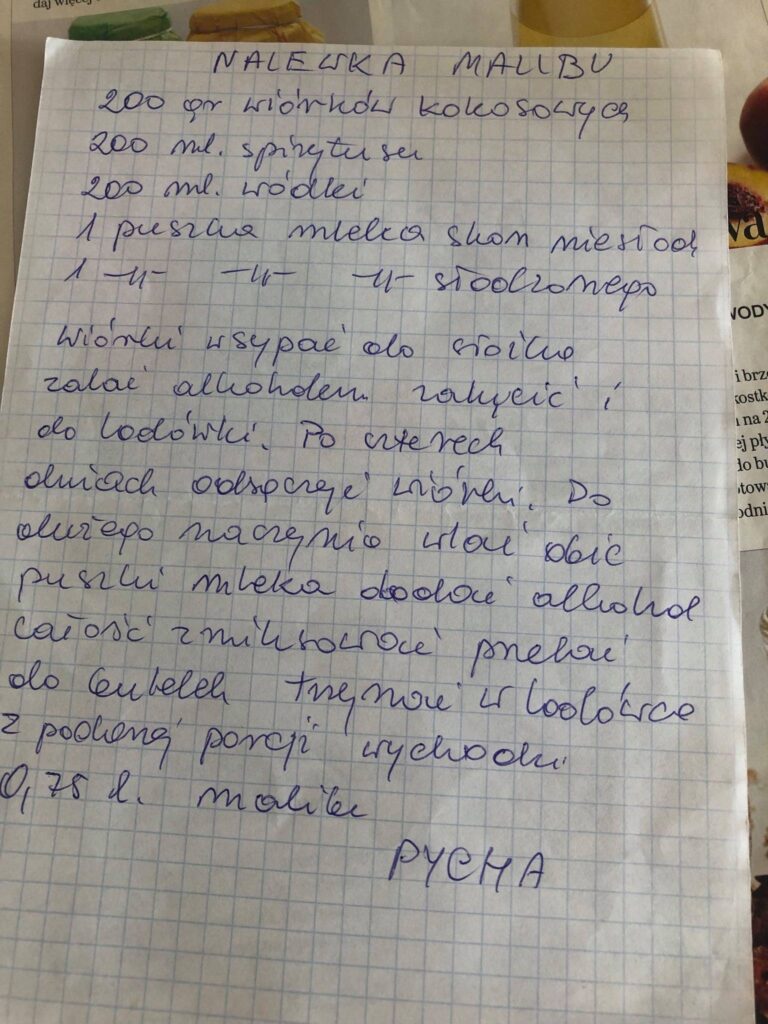 daj więcej
NALEWKA MALIBU
200 gr wiórków kokosowych
200 ml. spirytusu
200 ml. wódki
1 puszka mleka skon niesłod
1 -„- -„- -„- słodzonego
wiórki wsypać do słoika
zalać alkoholem zakręcić i
do lodówki. Po czterech
dniach odsączyć wiórki. Do
dużego naczynia wlać obie
puszki mleka dodać alkohol
całość zmiksować przelać
do butelek trzymać w lodówce
z podanej porcji wychodzi
0,75 l. malibu
PYCHA
WODY
i brz
kostk
na 2
ej pły
do bu
otow
odni